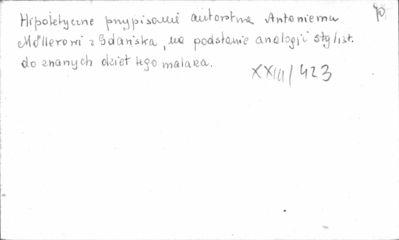 Hipotetyczne przypisanie autorstwa Antoniemu
Möllerowi z Gdańska, na podstawie analogii stylist.
do znanych dzieł tego malarza.
XXIII/423